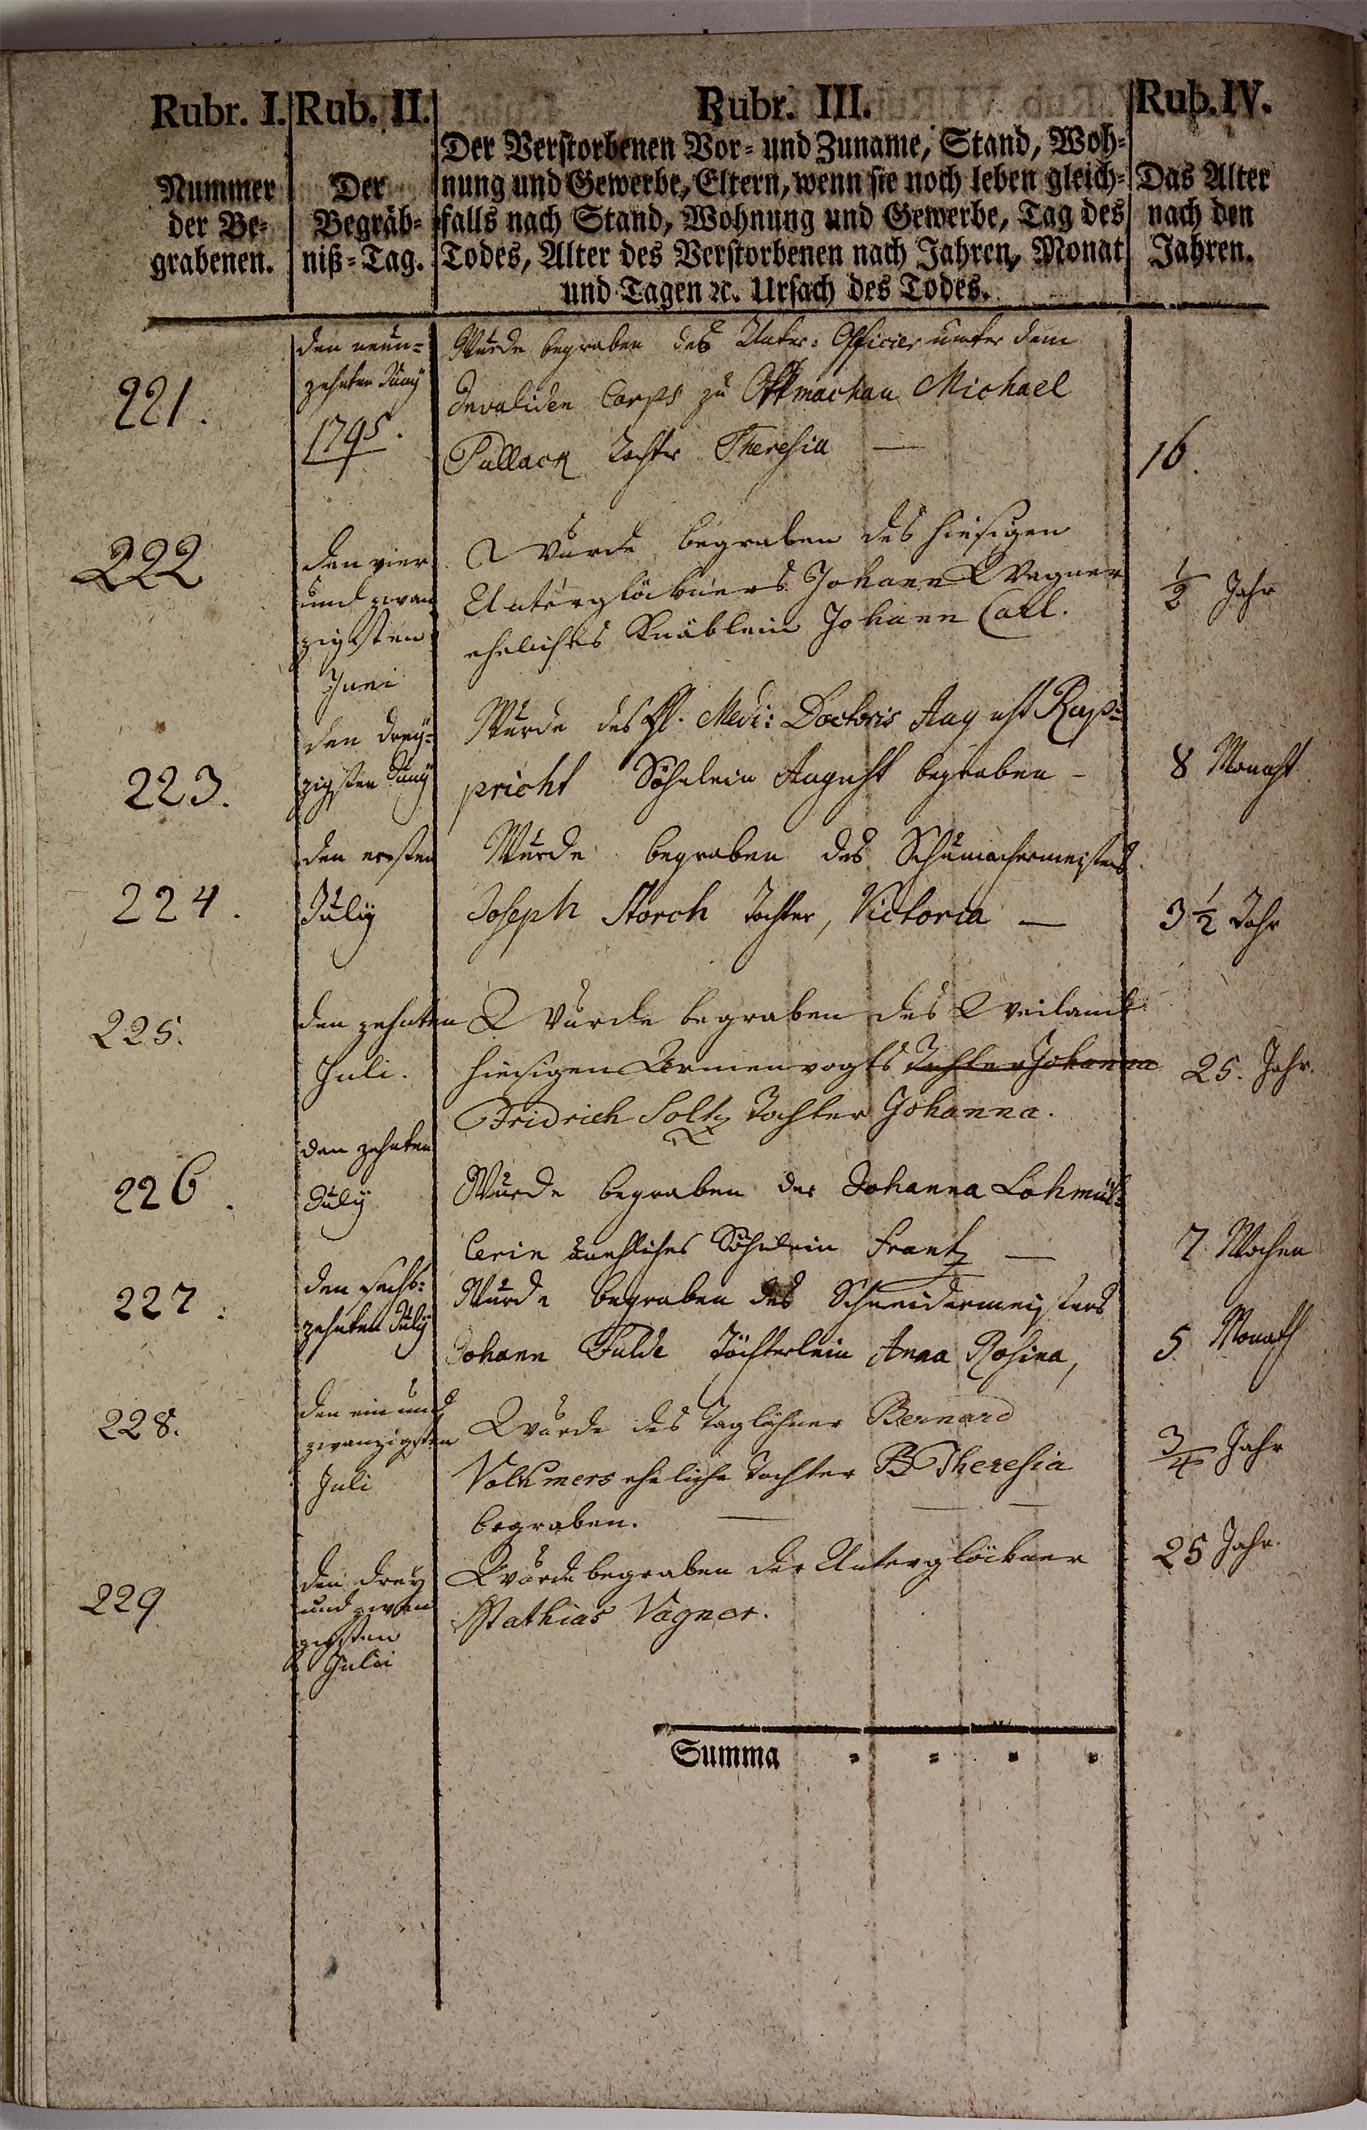 Rubr. I. Rub. II. Rubr. III. Rub. IV.
Nummer
der Be-
grabenen.
Der
Begräb-
niß-Tag.
Der Verstorbenen Vor- und Zuname, Stand, Woh-
nung und Gewerbe, Eltern, wenn sie noch leben gleich-
falls nach Stand, Wohnung und Gewerbe, Tag des
Todes, Alter des Verstorbenen nach Jahren, Monat
und Tagen ꝛc. Ursach des Todes.
Das Alter
nach den
Jahren.
221.
den neun-
zehnten Juny
1795.
Wurde begraben des Unter-Officier unter dem
Invaliden Corps zu Ottmachau Michael
Pallack Tochter Theresia —
16.
222
den vier
und zwan
zigsten
Juni
Wurde begraben des hiesigen
Unterglöckners Johann Wagner
eheliches Knäblein Johann Carl.
1/2 Jahr
223.
den drey-
zigsten Juny
Wurde des H. Medi: Doctoris August Rup-
pricht Söhnlein August begraben -
8 Monath
224.
den ersten
July
Wurde begraben des Schumachermeisters
Joseph Storch Tochter, Victoria —
3 1/2 Jahr
225.
den zehnten
Juli.
Wurde begraben des Weiland
hiesigen Armenvogts Tochter Johanna
Fridrich Soltz Tochter Johanna.
25. Jahr.
226.
den zehnten
July
Wurde begraben der Johanna Lohmül-
lerin unehliches Söhnlein Frantz —
7 Wochen
227.
den sechs-
zehnten July
Wurde begraben des Schneidermeisters
Johann Fulde Töchterlein Anna Rosina,
5 Monath
228.
den ein und
zwanzigsten
Juli
Wurde des Taglöhner Bernard
Volkmers eheliche Tochter Theresia
begraben. —
3/4 Jahr
229
den drey
und zwan
zigsten
Juli
Wurde begraben der Unterglöckner
Mathias Wagner.
25 Jahr.
Summa - - - -